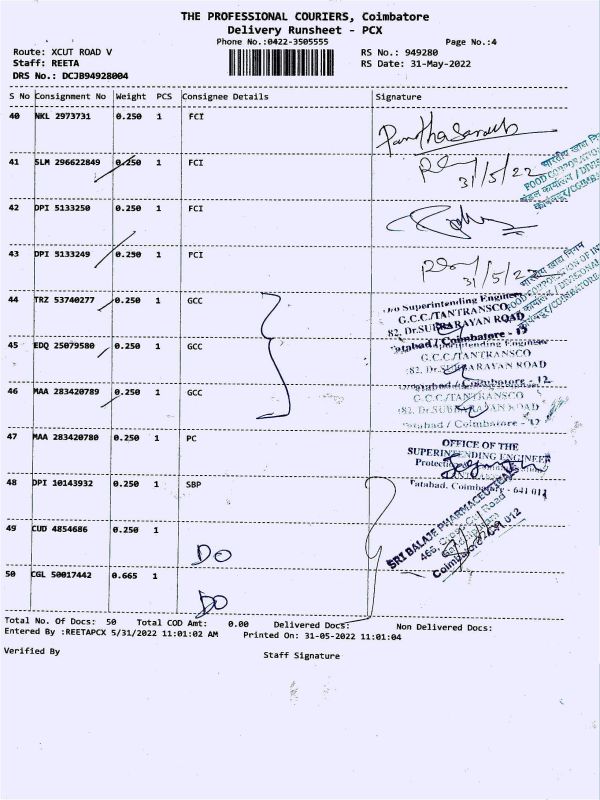 THE PROFESSIONAL COURIERS, Coimbatore
Delivery Runsheet - PCX
Phone No.:0422-3505555 Page No.:4
Route: XCUT ROAD V RS No.: 949280
Staff: REETA RS Date: 31-May-2022
DRS No.: DCJB94928004
S No Consignment No Weight PCS Consignee Details Signature
40 NKL 2973731 0.250 1 FCI
41 SLM 296622849 0.250 1 FCI
31/5/22
42 DPI 5133250 0.250 1 FCI
43 DPI 5133249 0.250 1 FCI
31/5/22
44 TRZ 53740277 0.250 1 GCC
O/o Superintending Engineer
G.C.C./TANTRANSCO
82, Dr.SUBBARAYAN ROAD
Tatabad / Coimbatore - 12
45 EDQ 25079580 0.250 1 GCC
Superintending Engineer
G.C.C./TANTRANSCO
82, Dr.SUBBARAYAN ROAD
Tatabad / Coimbatore - 12
46 MAA 283420789 0.250 1 GCC
G.C.C./TANTRANSCO
82, Dr.SUBBARAYAN ROAD
Tatabad / Coimbatore - 12
47 MAA 283420780 0.250 1 PC
OFFICE OF THE
SUPERINTENDING ENGINEER
Tatabad, Coimbatore - 641 012
48 DPI 10143932 0.250 1 SBP
SRI BALAJE PHARMACEUTICALS
49 CUD 4854686 0.250 1
DO
50 CGL 50017442 0.665 1
DO
Total No. Of Docs: 50 Total COD Amt: 0.00 Delivered Docs: Non Delivered Docs:
Entered By :REETAPCX 5/31/2022 11:01:02 AM Printed On: 31-05-2022 11:01:04
Verified By Staff Signature